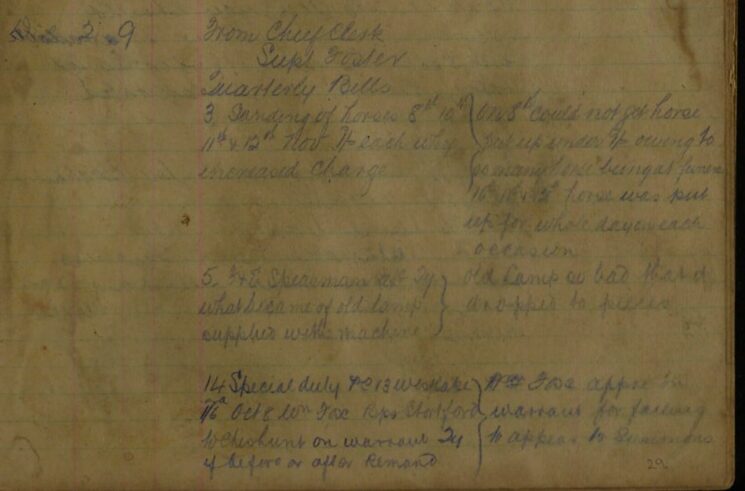 9 From Chief Clerk
Supt Foster
Quarterly Bills
3 Standing of horses 8th 10th on 8th could not get horse
11th & 12th Nov each why put up under owing to
increased Charge so many horses being at funeral
10th 11th & 12th horse was put
up for whole day on each
occasion
5 Spearman old lamp so bad that it
what became of old lamp dropped to pieces
supplied with machine
14 Special duty PC 13 Westlake Fox appre on
Oct 8 Wm Fox Bps Stortford warrant for failing
to Cheshunt on warrant to appear to Summons
if before or after Remand
29